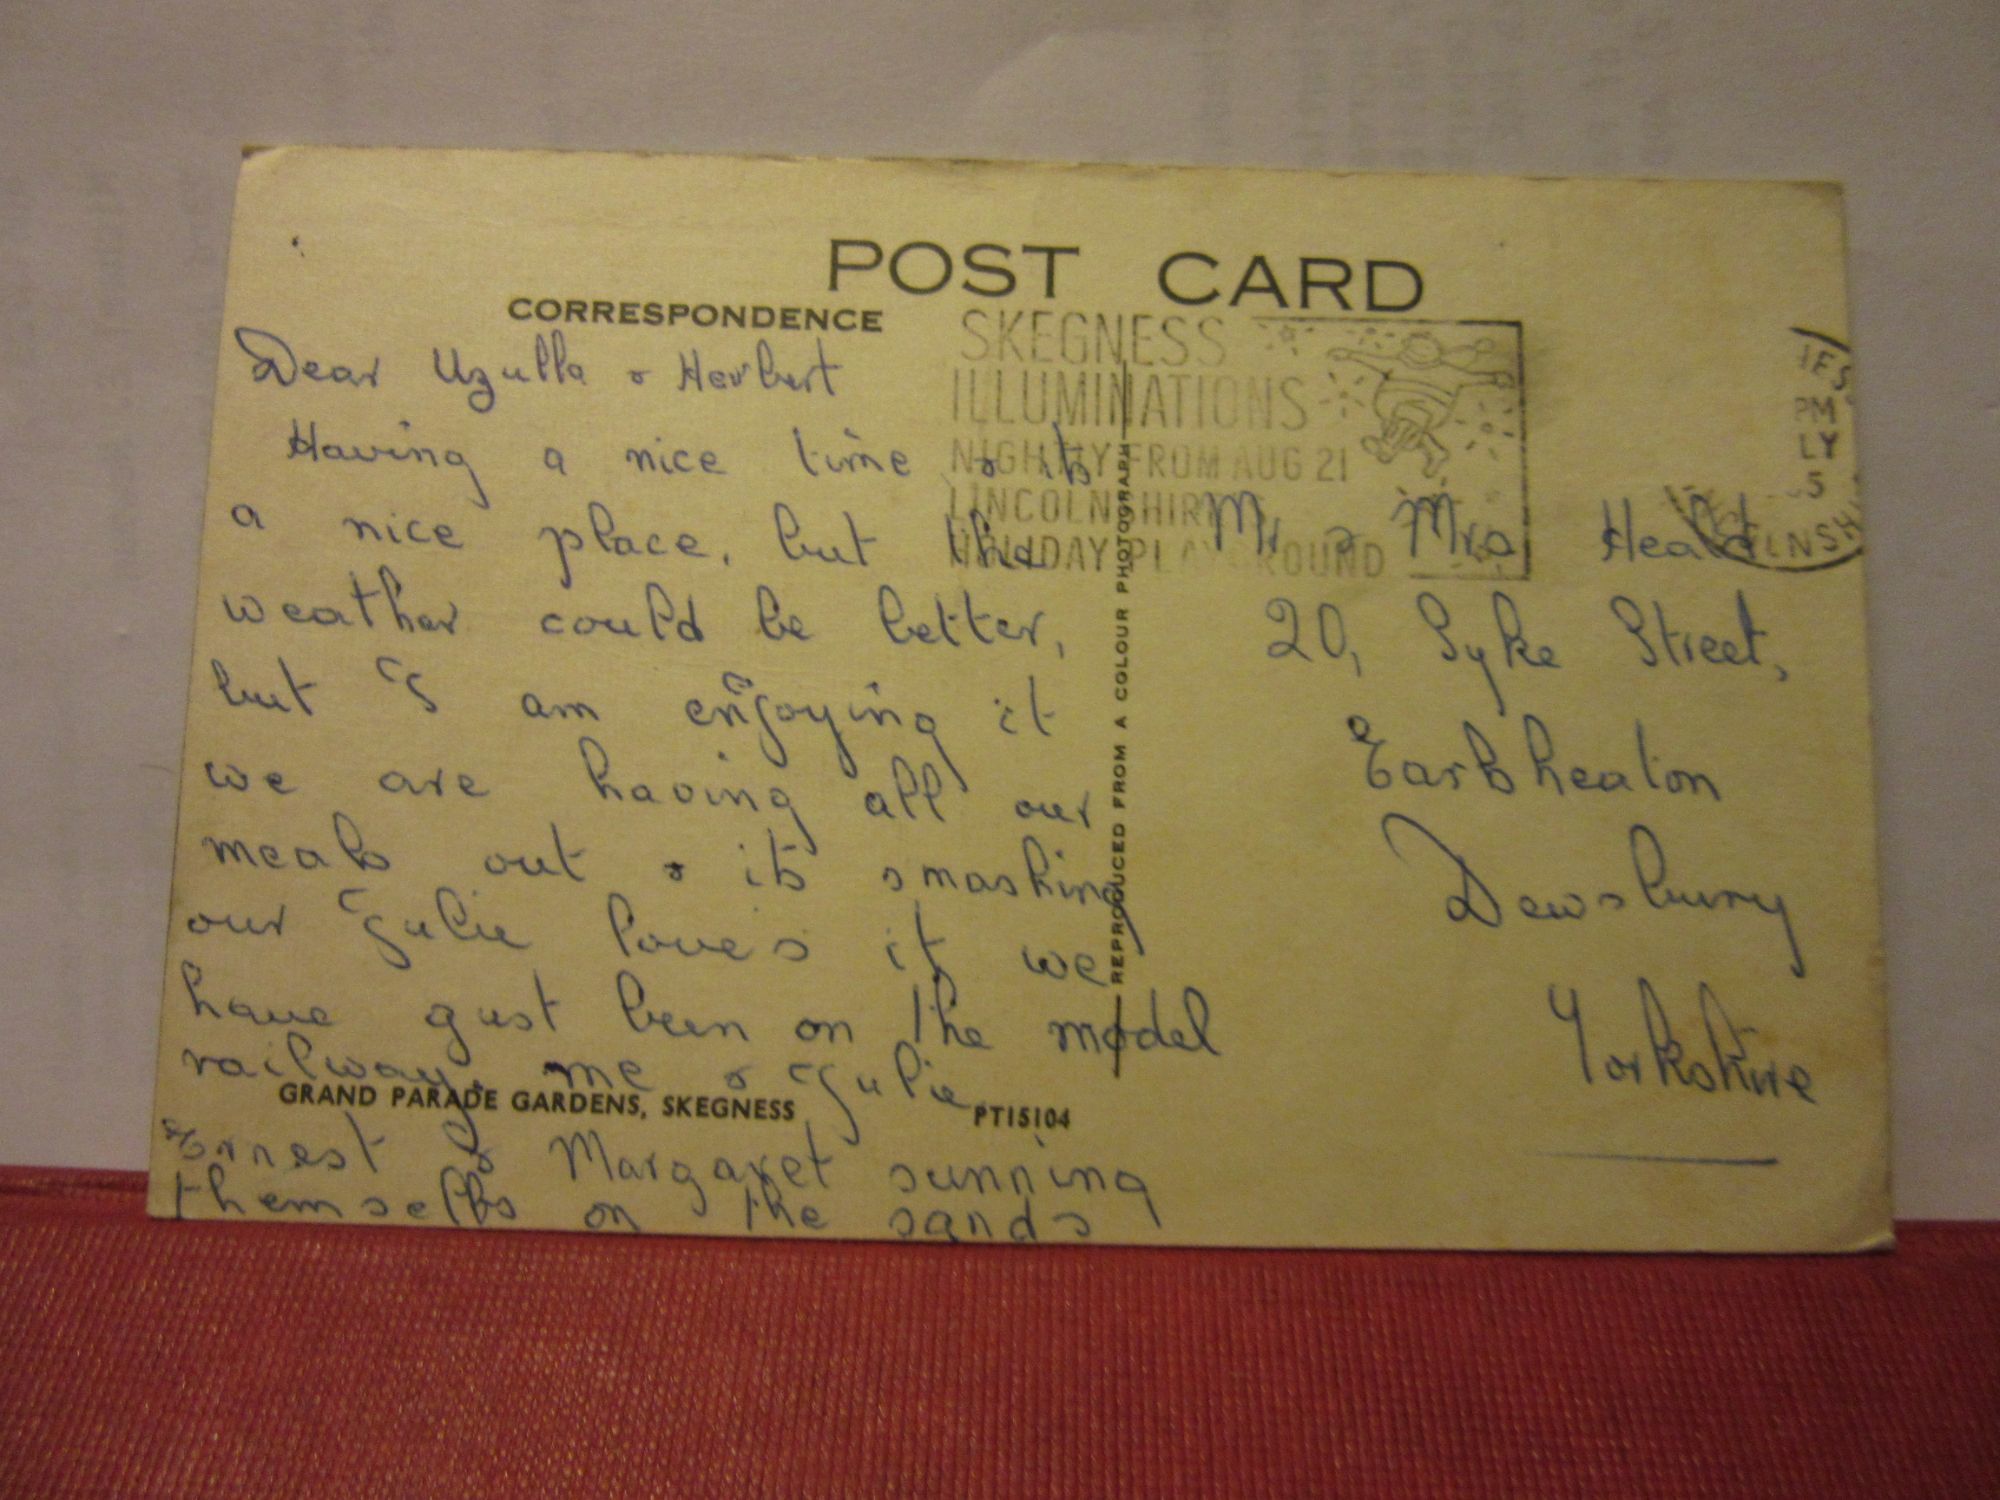 POST CARD
CORRESPONDENCE
SKEGNESS
ILLUMINATIONS
NIGHTLY FROM AUG 21
LINCOLNSHIRE
HOLIDAY PLAYGROUND
PM
LY
5
Dear Uzulla & Herbert
Having a nice time & its
a nice place, but the
weather could be better,
but I am enjoying it
we are having all our
meals out & its smashing
our Julie loves it we
have just been on the model
railway, me & Julie
Ernest & Margaret sunning
themselbs on the sands
GRAND PARADE GARDENS, SKEGNESS
PT15104
REPRODUCED FROM A COLOUR PHOTOGRAPH
Mr & Mrs Heald
20, Syke Street,
Earlsheaton
Dewsbury
Yorkshire